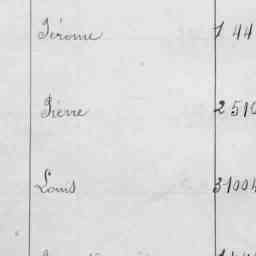 Jérome 1 44
Pierre 2 510
Louis 3 1004